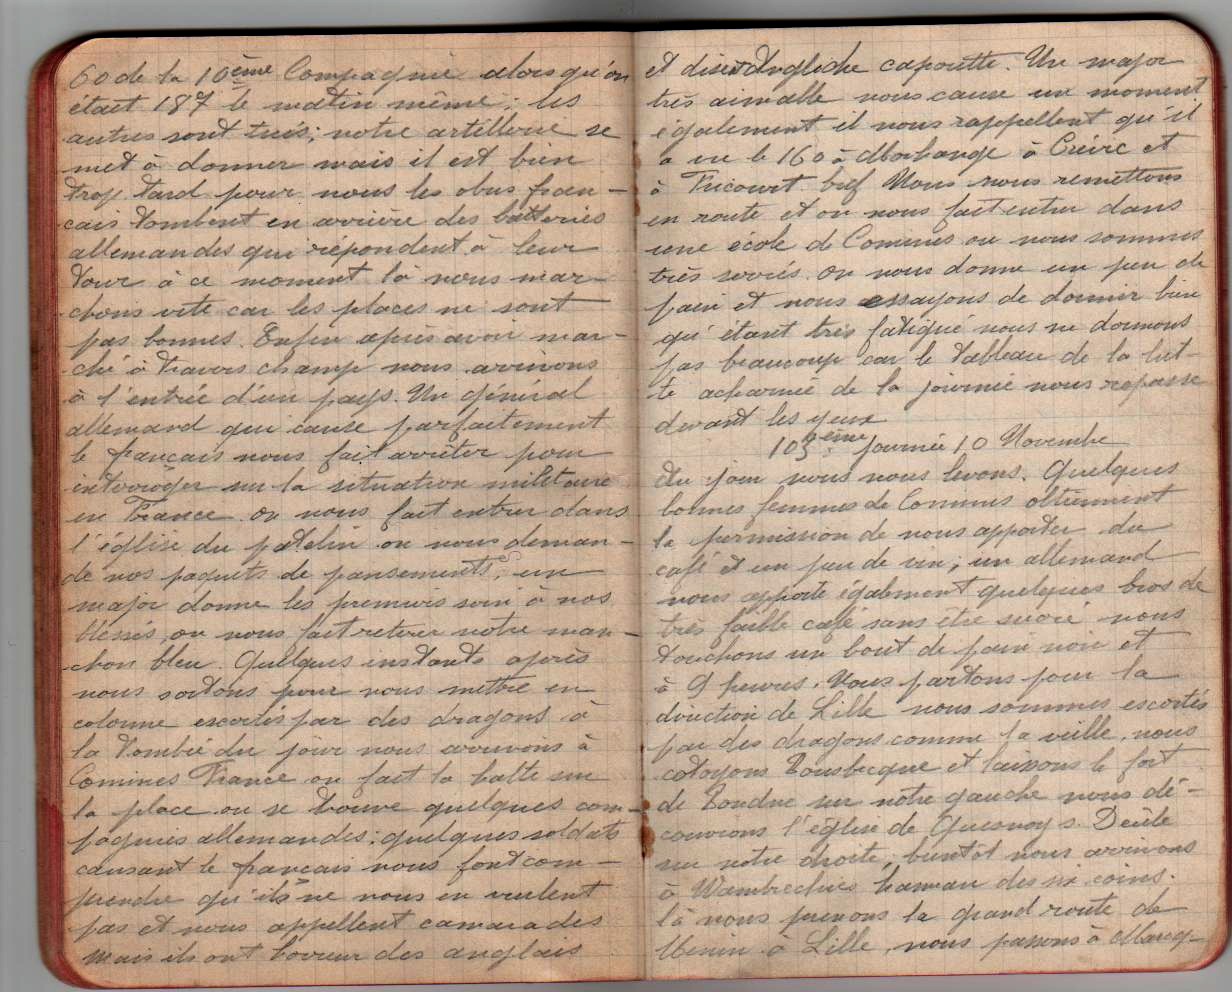 60 de la 10ème Compagnie alors qu'on
était 187 le matin même; les
autres sont tués; notre artillerie se
met à donner mais il est bien
trop tard pour nous les obus fran-
çais tombent en arrière des batteries
allemandes qui répondent à leur
tour à ce moment là nous mar-
chons vite car les places ne sont
pas bonnes. Enfin après avoir mar-
ché à travers champ nous arrivons
à l'entrée d'un pays. Un général
allemand qui cause parfaitement
le français nous fait arrêter pour
intérroger sur la situation militaire
en France. on nous fait entrer dans
l'église du patelin on nous deman-
de nos paquets de pansements, un
major donne les premiers soin à nos
blessés, on nous fait retirer notre man-
chon bleu. Quelques instants après
nous sortons pour nous mettre en
colonne escortés par des dragons à
la tombée du jour nous arrivons à
Comines France on fait la halte sur
la place ou se trouve quelques com-
pagnies allemandes; quelques soldats
causant le français nous font com-
prendre qu'ils ne nous en veulent
pas et nous appellent camarades
mais ils ont horreur des anglais
et disent Angliche capoutte. Un major
très aimable nous cause un moment
également il nous rappellent qu'il
a vu le 160 à Morhange à Créirc et
à Fricourt bref Nous nous remettons
en route et on nous fait entrer dans
une école de Comines ou nous sommes
très serrés. on nous donne un peu de
pain et nous essayons de dormir bien
qu'étant très fatigué nous ne dormons
pas beaucoup car le tableau de la lut-
te acharnée de la journée nous repasse
devant les yeux
103ème journée 10 Novembre
du jour nous nous levons. Quelques
bonnes femmes de Comines obtiennent
la permission de nous apporter du
café et un peu de vin; un allemand
nous apporte également quelques bros de
très faible café sans être sucré nous
touchons un bout de pain noir et
à 9 heures. Nous partons pour la
direction de Lille nous sommes escortés
par des dragons comme la veille, nous
cotoyons Bousbecque et laissons le fort
de Bondue sur notre gauche nous dé-
couvrons l'église de Quesnoy s. Deûle
sur notre droite, bientôt nous arrivons
à Wambrechies hameau des coins.
là nous prenons la grand route de
Menin à Lille, nous passons à Marcq-